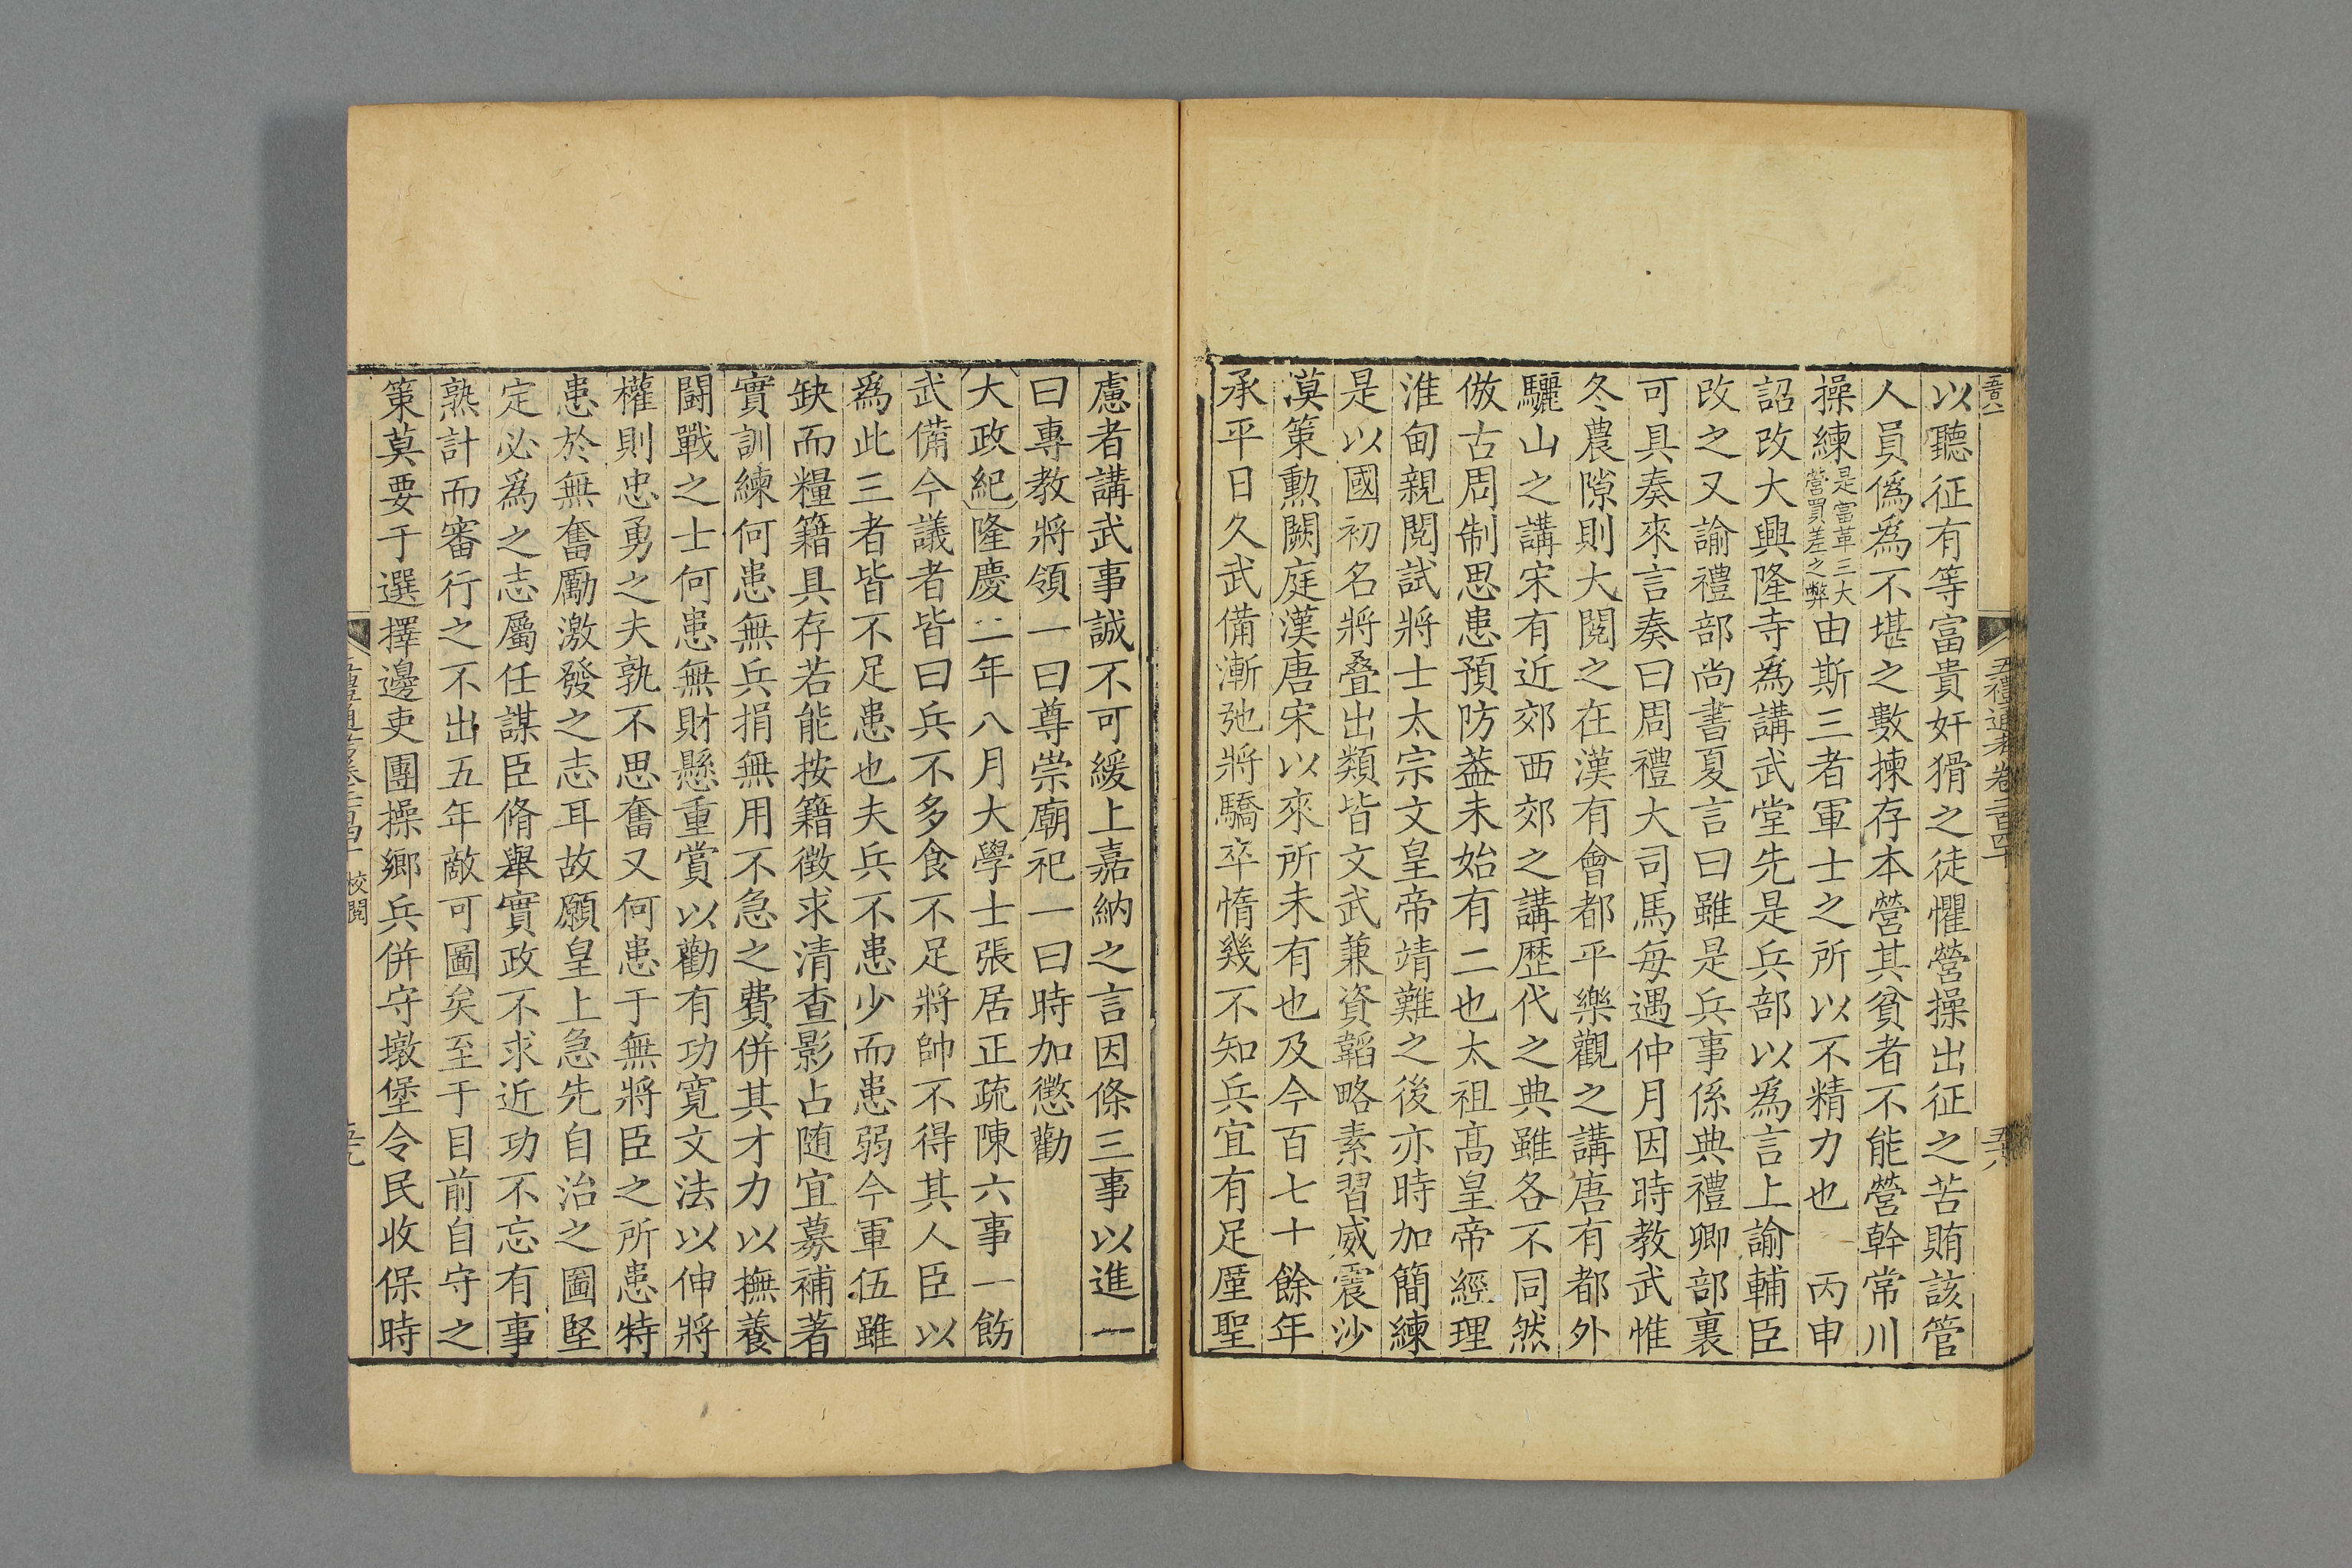 五禮通考卷二百四十
以聽征有等富貴奸猾之徒懼營操出征之苦賄該管
人員僞爲不堪之數揀存本營其貧者不能營幹常川
操練是富革三大營買差之弊由斯三者軍士之所以不精力也 丙申
詔改大興隆寺爲講武堂先是兵部以爲言上諭輔臣
改之又諭禮部尚書夏言曰雖是兵事係典禮卿部裏
可具奏來言奏曰周禮大司馬每遇仲月因時教武惟
冬農隙則大閱之在漢有會都平樂觀之講唐有都外
驪山之講宋有近郊西郊之講歷代之典雖各不同然
倣古周制思患預防葢未始有二也太祖高皇帝經理
淮甸親閱試將士太宗文皇帝靖難之後亦時加簡練
是以國初名將叠出類皆文武兼資韜略素習威震沙
漠策勳闕庭漢唐宋以來所未有也及今百七十餘年
承平日久武備漸弛將驕卒惰幾不知兵宜有足廑聖
慮者講武事誠不可緩上嘉納之言因條三事以進一
曰專教將領一曰尊崇廟祀一曰時加懲勸
大政紀隆慶二年八月大學士張居正疏陳六事一飭
武備今議者皆曰兵不多食不足將帥不得其人臣以
爲此三者皆不足患也夫兵不患少而患弱今軍伍雖
缺而糧籍具存若能按籍徵求清查影占随宜募補著
實訓練何患無兵捐無用不急之費併其才力以撫養
鬬戰之士何患無財懸重賞以勸有功寬文法以伸將
權則忠勇之夫孰不思奮又何患于無將臣之所患特
患於無奮勵激發之志耳故願皇上急先自治之圖堅
定必爲之志屬任謀臣脩舉實政不求近功不忘有事
熟計而審行之不出五年敵可圖矣至于目前自守之
策莫要于選擇邊吏團操鄉兵併守墩堡令民收保時
校閱